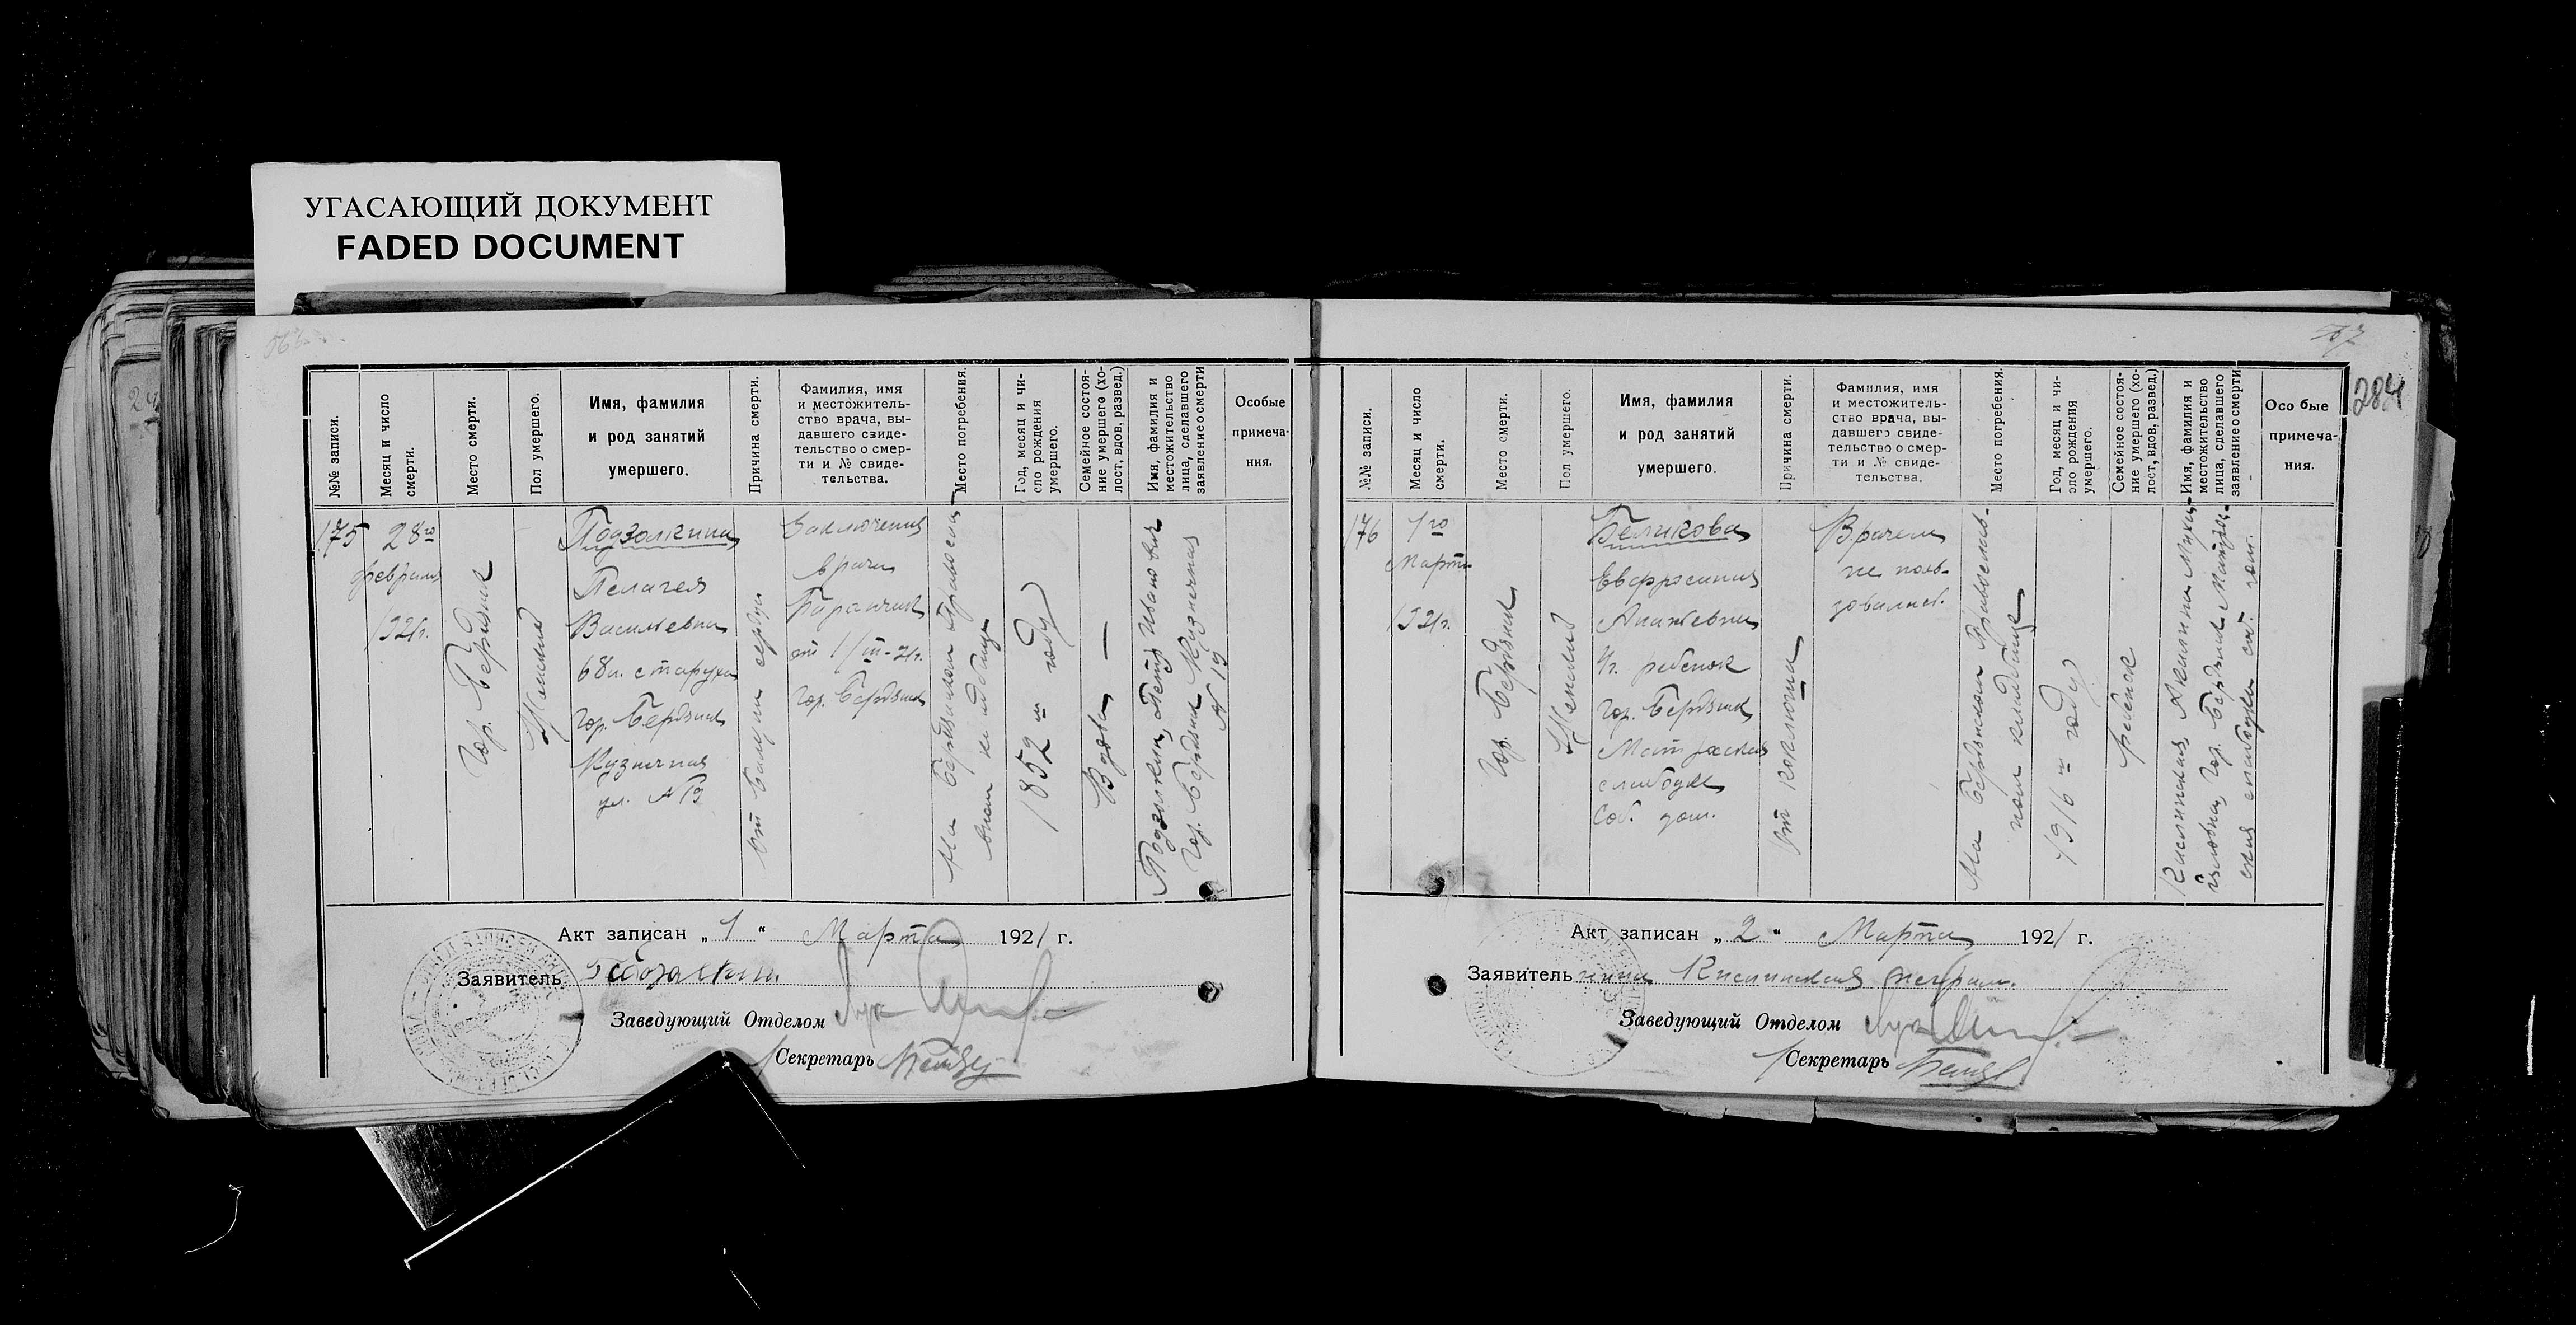 УГАСАЮЩИЙ ДОКУМЕНТ
FADED DOCUMENT
№№ записи.
Месяц и число
смерти.
Место смерти.
Пол умершего.
Имя, фамилия
и род занятий
умершего.
Причина смерти.
Фамилия, имя
и местожитель-
ство врача, вы-
давшего свиде-
тельство о смер-
ти и № свиде-
тельства.
Место погребения.
Год, месяц и чи-
сло рождения
умершего.
Семейное состоя-
ние умершего (хо-
лост, вдов, развед.)
Имя, фамилия и
местожительство
лица, сделавшего
заявление о смерти
Особые
примеча-
ния.
175
28го
февраля
1921г.
Гор. Бердянск
Женский
Подзолкина
Пелагея
Васильевна
68л. старуха
гор. Бердянск
Кузнечная
ул. №19
от болезни сердца
Заключения
врача
от 1/III-21г.
гор. Бердянск
На Бердянском Православ-
вном кладбище
1852 м году
Вдова —
Подзолкин, Петр Иванович
Гор. Бердянск Кузнечная
№ 19
Акт записан „1“ Марта 1921 г.
Заявитель Подзолкин
Заведующий Отделом
Секретарь
284
№№ записи.
Месяц и число
смерти.
Место смерти.
Пол умершего.
Имя, фамилия
и род занятий
умершего.
Причина смерти.
Фамилия, имя
и местожитель-
ство врача, вы-
давшего свиде-
тельство о смер-
ти и № свиде-
тельства.
Место погребения.
Год, месяц и чи-
сло рождения
умершего.
Семейное состоя-
ние умершего (хо-
лост, вдов, развед.)
Имя, фамилия и
местожительство
лица, сделавшего
заявление о смерти
Особые
примеча-
ния.
176
1го
Марта
1921г.
Гор. Бердянск
Женский
Беликова
Евфросиния
4г. ребенок
гор. Бердянск
слободка
Соб. дом.
От коклюша
Врачем
не поль-
зовалась.
На Бердянском Православ-
ном кладбище
1916 м году
ребенок
гор. Бердянск
слободка соб. дом.
Акт записан „2“ Марта 1921 г.
Заявитель неграм.
Заведующий Отделом
Секретарь